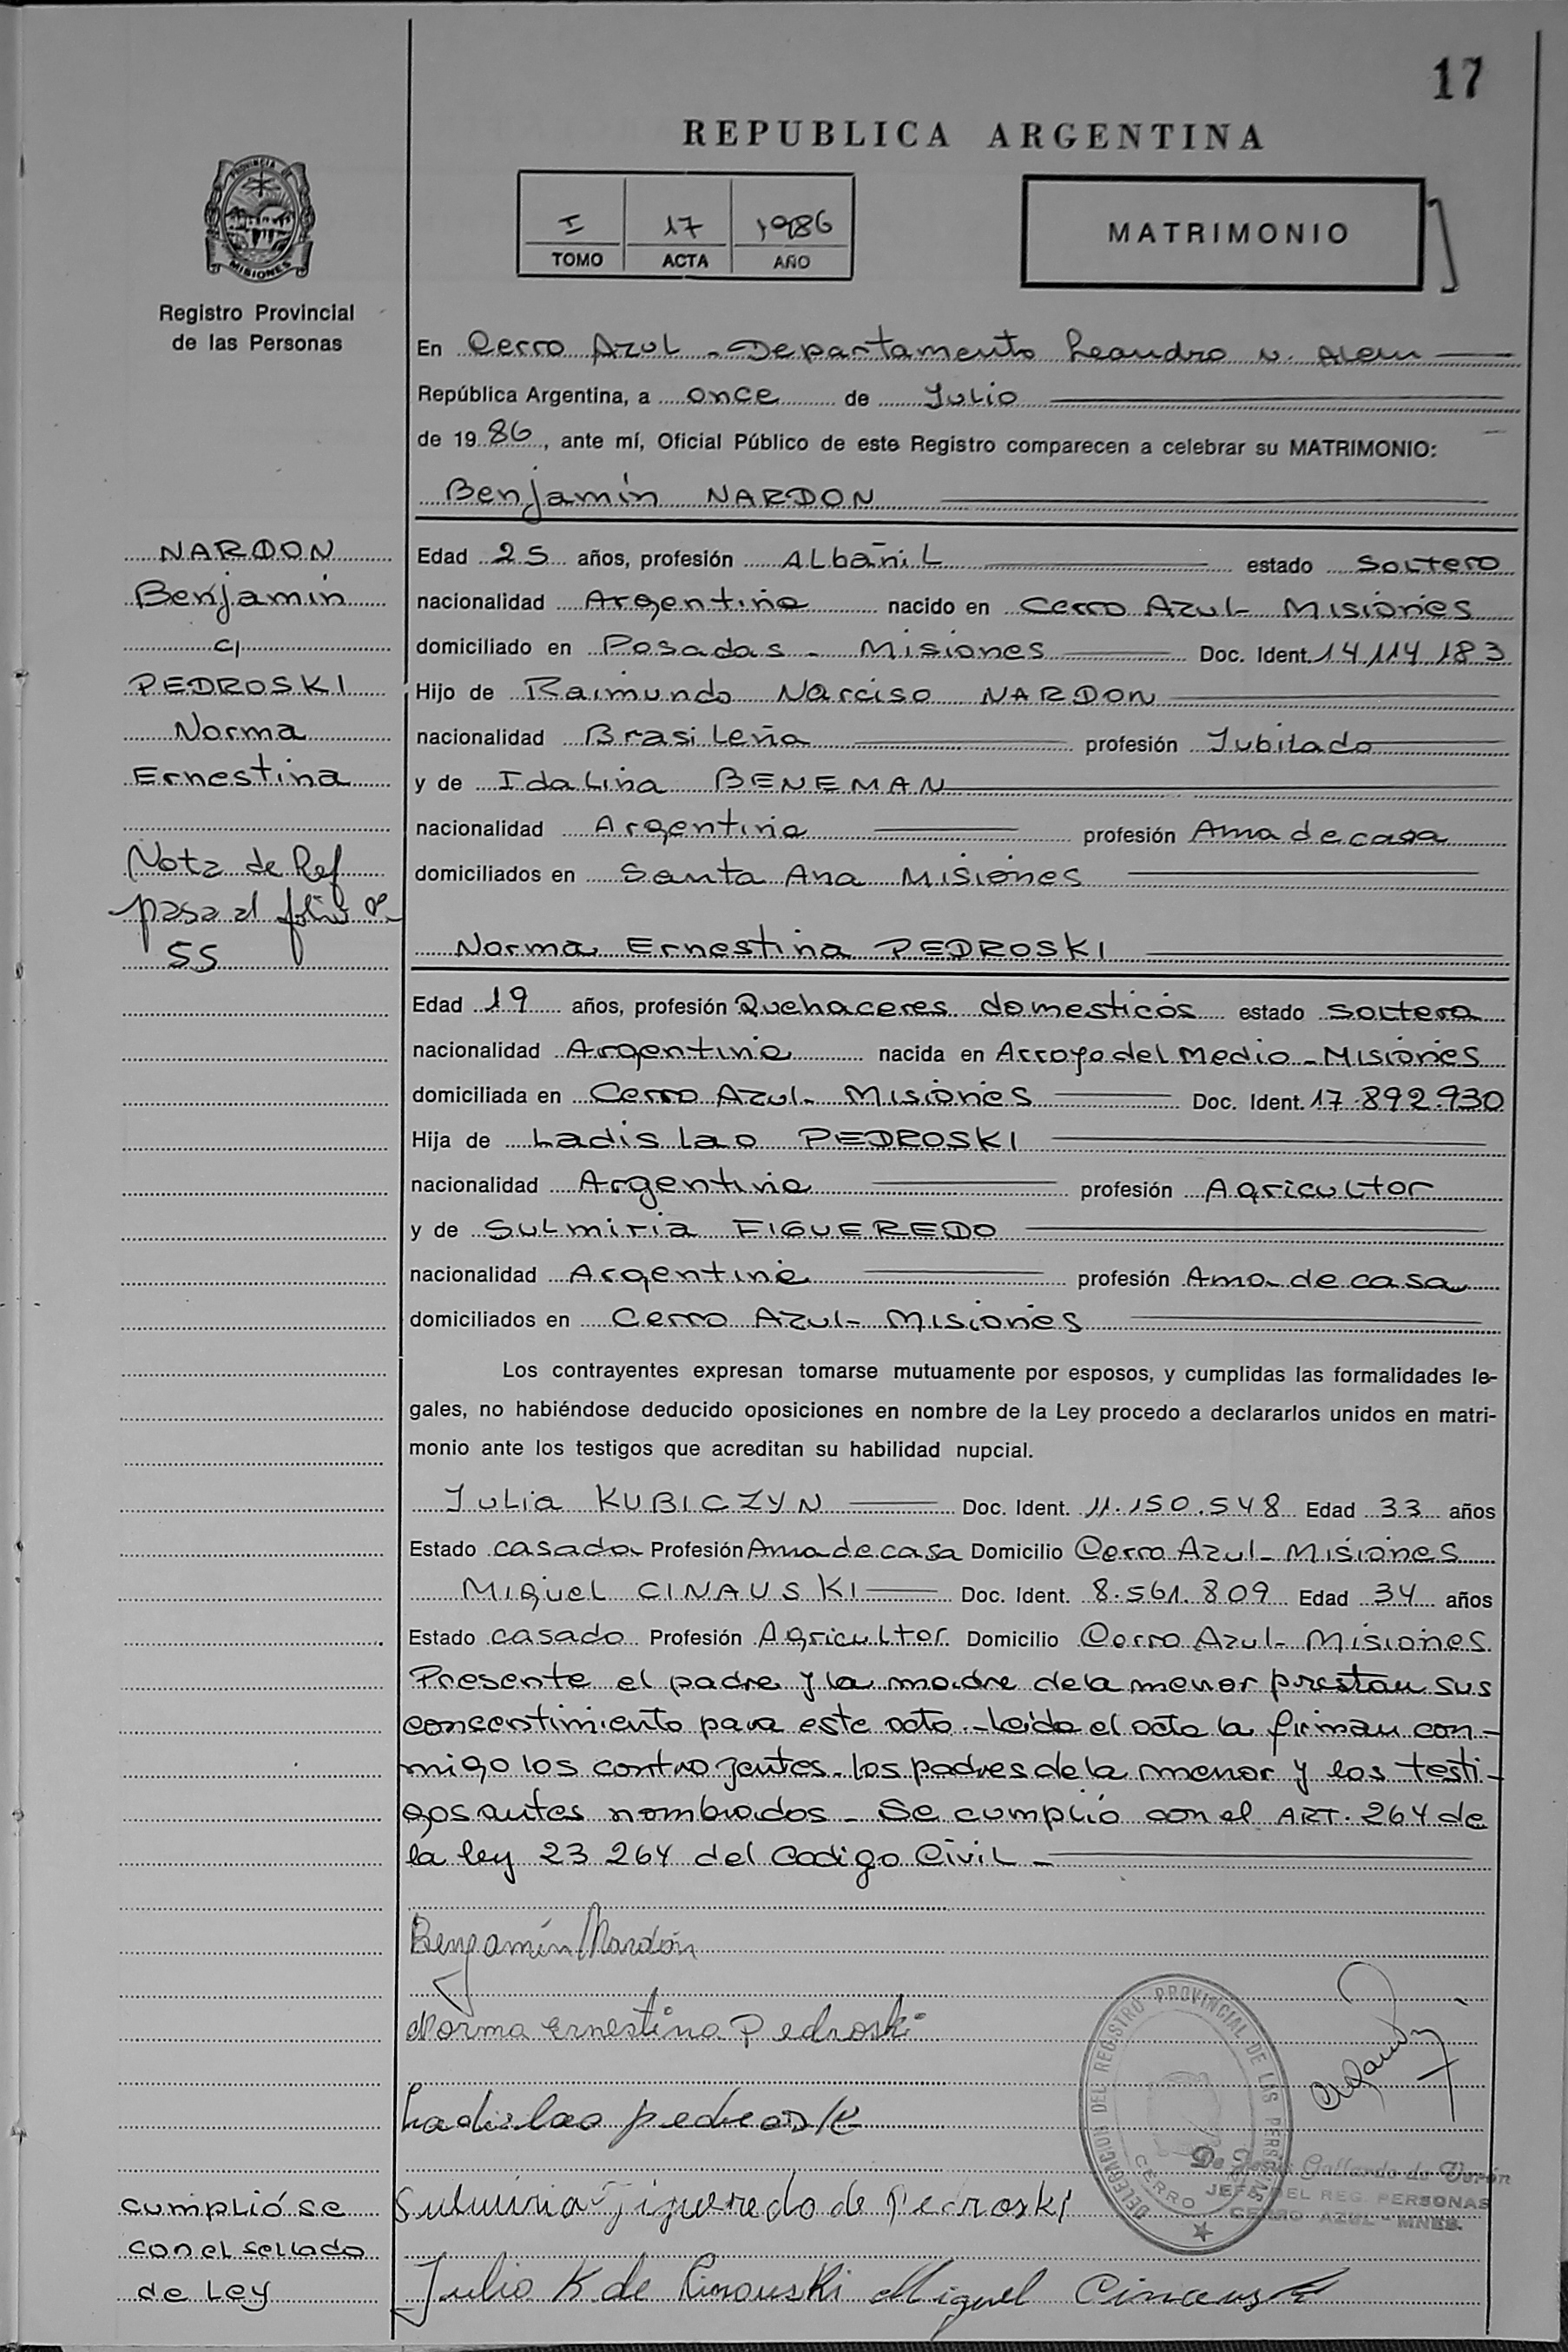 17
REPUBLICA ARGENTINA
PROVINCIA DE
MISIONES
Registro Provincial
de las Personas
I 17 1986
TOMO ACTA AÑO
MATRIMONIO
En Cerro Azul - Departamento Leandro N. Alem
República Argentina, a once de Julio
de 1986, ante mí, Oficial Público de este Registro comparecen a celebrar su MATRIMONIO:
Benjamín NARDON
NARDON
Benjamin
c/
PEDROSKI
Norma
Ernestina
Nota de Ref
pasa al folio
55
Edad 25 años, profesión Albañil estado Soltero
nacionalidad Argentina nacido en Cerro Azul - Misiones
domiciliado en Posadas - Misiones Doc. Ident. 14.114.183
Hijo de Raimundo Narciso NARDON
nacionalidad Brasileña profesión Jubilado
y de Idalina BENEMAN
nacionalidad Argentina profesión Ama de casa
domiciliados en Santa Ana Misiones
Norma Ernestina PEDROSKI
Edad 19 años, profesión Quehaceres domesticos estado soltera
nacionalidad Argentina nacida en Arroyo del Medio - Misiones
domiciliada en Cerro Azul - Misiones Doc. Ident. 17.892.930
Hija de Ladislao PEDROSKI
nacionalidad Argentina profesión Agricultor
y de Sulmiria FIGUEREDO
nacionalidad Argentina profesión Ama de casa
domiciliados en Cerro Azul - Misiones
Los contrayentes expresan tomarse mutuamente por esposos, y cumplidas las formalidades le-
gales, no habiéndose deducido oposiciones en nombre de la Ley procedo a declararlos unidos en matri-
monio ante los testigos que acreditan su habilidad nupcial.
Julia KUBICZYN Doc. Ident. 11.150.548 Edad 33 años
Estado casada Profesión Ama de casa Domicilio Cerro Azul - Misiones
Miguel CINAUSKI Doc. Ident. 8.561.809 Edad 34 años
Estado casado Profesión Agricultor Domicilio Cerro Azul - Misiones
Presente el padre y la madre de la menor prestan sus
concentimiento para este acto. - Leida el acta la firman con-
migo los contrayentes - los padres de la menor y los testi-
gos antes nombrados - Se cumplió con el ART. 264 de
la ley 23 264 del Codigo Civil -
Benjamín Nardón
Norma Ernestina Pedroski
Ladislao pedroski
Sulmiria Figueredo de Pedroski
Julia K de Cinouski Miguel Cinauski
DELEGACION DEL REGISTRO PROVINCIAL DE LAS PERSONAS
CERRO
De Jesús Gallardo de Verón
JEFA DEL REG. PERSONAS
CERRO AZUL - MNES.
cumplió se
con el sellado
de Ley